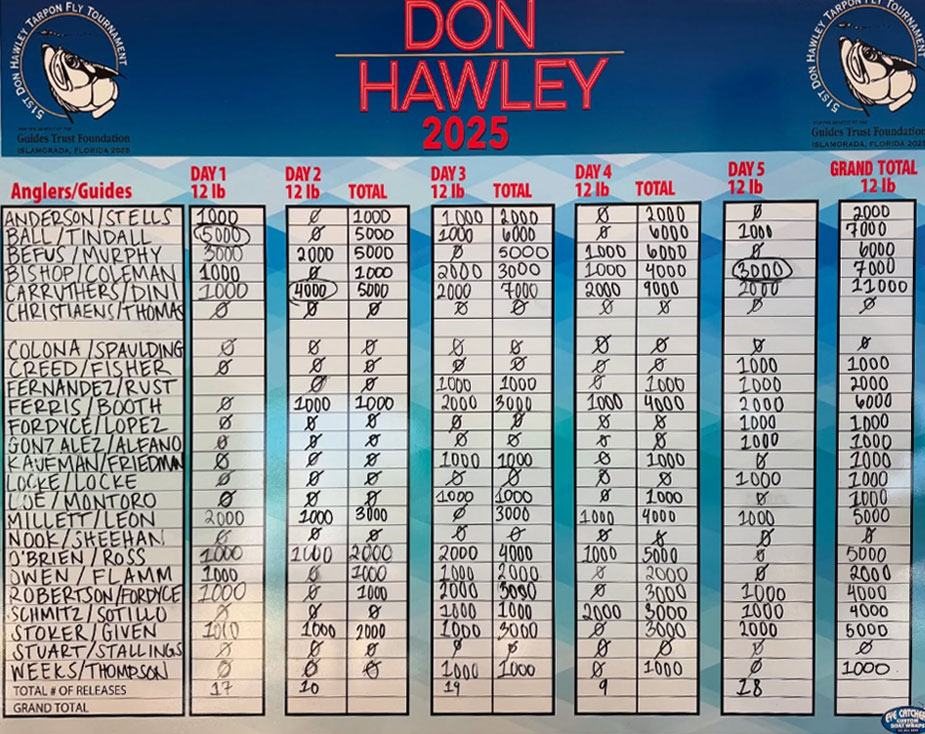 51ST DON HAWLEY TARPON FLY TOURNAMENT
Guides Trust Foundation
ISLAMORADA, FLORIDA 2025
DON
HAWLEY
2025
51ST DON HAWLEY TARPON FLY TOURNAMENT
Guides Trust Foundation
ISLAMORADA, FLORIDA 2025
Anglers/Guides DAY 1 12 lb DAY 2 12 lb TOTAL DAY 3 12 lb TOTAL DAY 4 12 lb TOTAL DAY 5 12 lb GRAND TOTAL 12 lb
ANDERSON/STELLS 1000 Ø 1000 1000 2000 Ø 2000 Ø 2000
BALL/TINDALL 5000 Ø 5000 1000 6000 Ø 6000 1000 7000
BEFUS/MURPHY 3000 2000 5000 Ø 5000 1000 6000 Ø 6000
BISHOP/COLEMAN 1000 Ø 1000 2000 3000 1000 4000 3000 7000
CARRUTHERS/DINI 1000 4000 5000 2000 7000 2000 9000 2000 11000
CHRISTIAENS/THOMAS Ø Ø Ø Ø Ø Ø Ø Ø Ø
COLONA/SPAULDING Ø Ø Ø Ø Ø Ø Ø Ø Ø
CREED/FISHER Ø Ø Ø Ø Ø Ø Ø 1000 1000
FERNANDEZ/RUST Ø Ø 1000 1000 Ø 1000 1000 2000
FERRIS/BOOTH Ø 1000 1000 2000 3000 1000 4000 2000 6000
FORDYCE/LOPEZ Ø Ø Ø Ø Ø Ø Ø 1000 1000
GONZALEZ/ALFANO Ø Ø Ø Ø Ø Ø Ø 1000 1000
KAUFMAN/FRIEDMAN Ø Ø Ø 1000 1000 Ø 1000 Ø 1000
LOCKE/LOCKE Ø Ø Ø Ø Ø Ø Ø 1000 1000
LOE/MONTORO Ø Ø Ø 1000 1000 Ø 1000 Ø 1000
MILLETT/LEON 2000 1000 3000 Ø 3000 1000 4000 1000 5000
NOOK/SHEEHAN Ø Ø Ø Ø Ø Ø Ø Ø Ø
O'BRIEN/ROSS 1000 1000 2000 2000 4000 1000 5000 Ø 5000
OWEN/FLAMM 1000 Ø 1000 1000 2000 Ø 2000 Ø 2000
ROBERTSON/FORDYCE 1000 Ø 1000 2000 3000 Ø 3000 1000 4000
SCHMITZ/SOTILLO Ø Ø Ø 1000 1000 2000 3000 1000 4000
STOKER/GIVEN 1000 1000 2000 1000 3000 Ø 3000 2000 5000
STUART/STALLINGS Ø Ø Ø Ø Ø Ø Ø Ø Ø
WEEKS/THOMPSON Ø Ø Ø 1000 1000 Ø 1000 Ø 1000
TOTAL # OF RELEASES 17 10 19 9 18
GRAND TOTAL
EYE CATCHER
CUSTOM
BOAT WRAPS